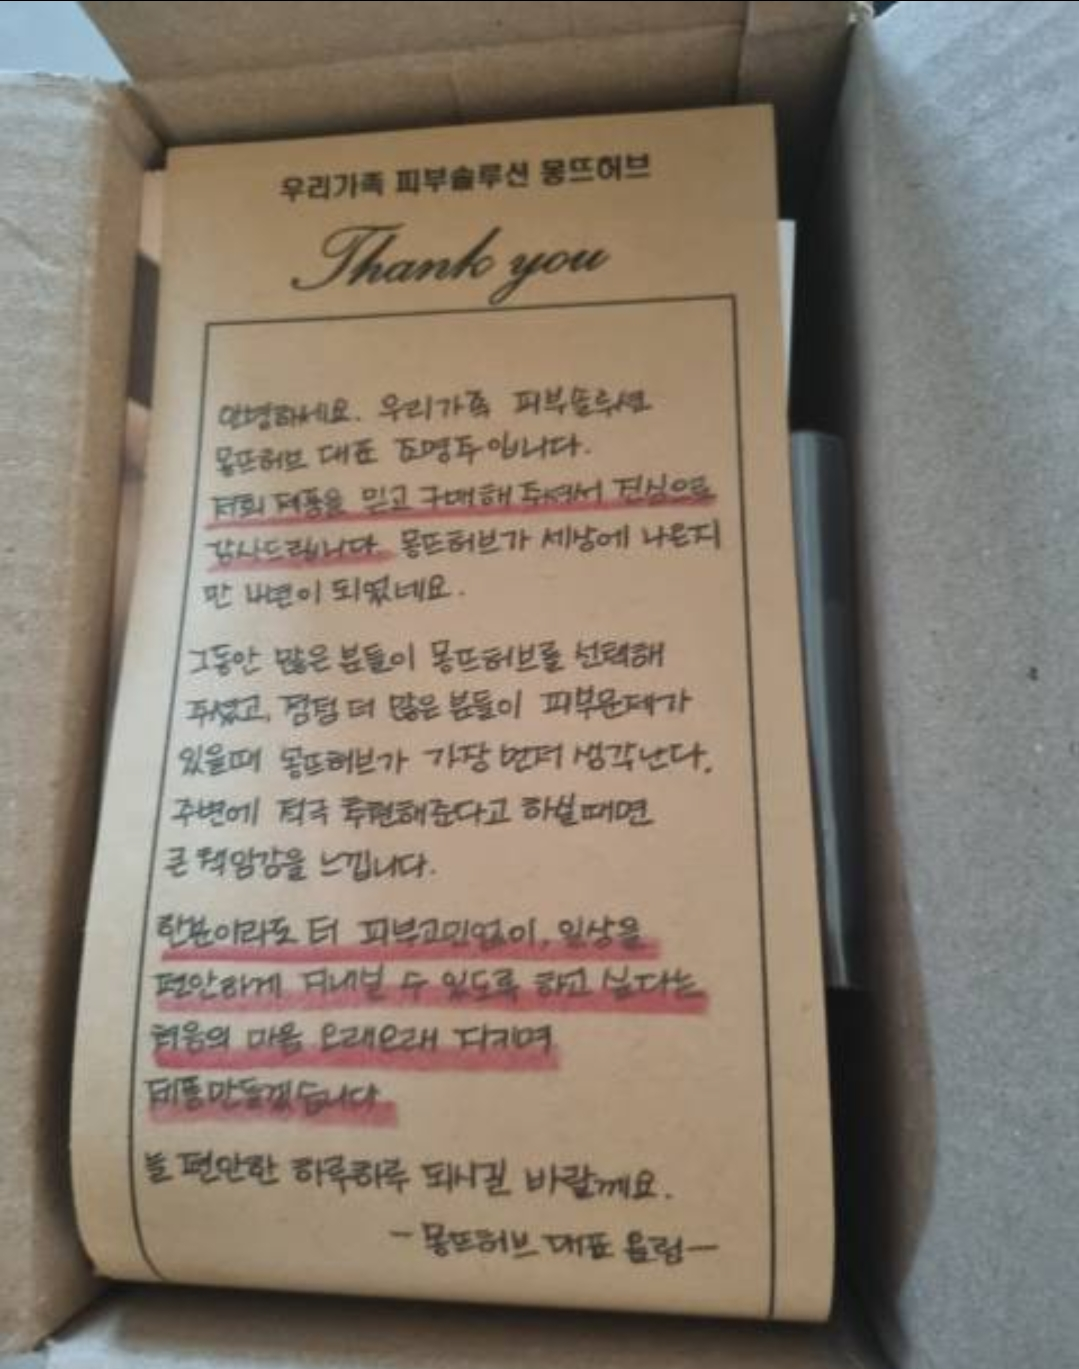 우리가족 피부솔루션 몽뜨허브
Thank you
안녕하세요. 우리가족 피부솔루션
몽뜨허브 대표 조명주입니다.
저희 제품을 믿고 구매해 주셔서 진심으로
감사드립니다. 몽뜨허브가 세상에 나온지
만 4년이 되었네요.
그동안 많은 분들이 몽뜨허브를 선택해
주셨고, 점점 더 많은 분들이 피부문제가
있을때 몽뜨허브가 가장 먼저 생각난다,
주변에 적극 추천해준다고 하실때면
큰 책임감을 느낍니다.
한분이라도 더 피부고민없이, 일상을
편안하게 지내실 수 있도록 하고 싶다는
처음의 마음 오래오래 지키며
제품만들겠습니다
늘 편안한 하루하루 되시길 바랄께요.
- 몽뜨허브 대표 -